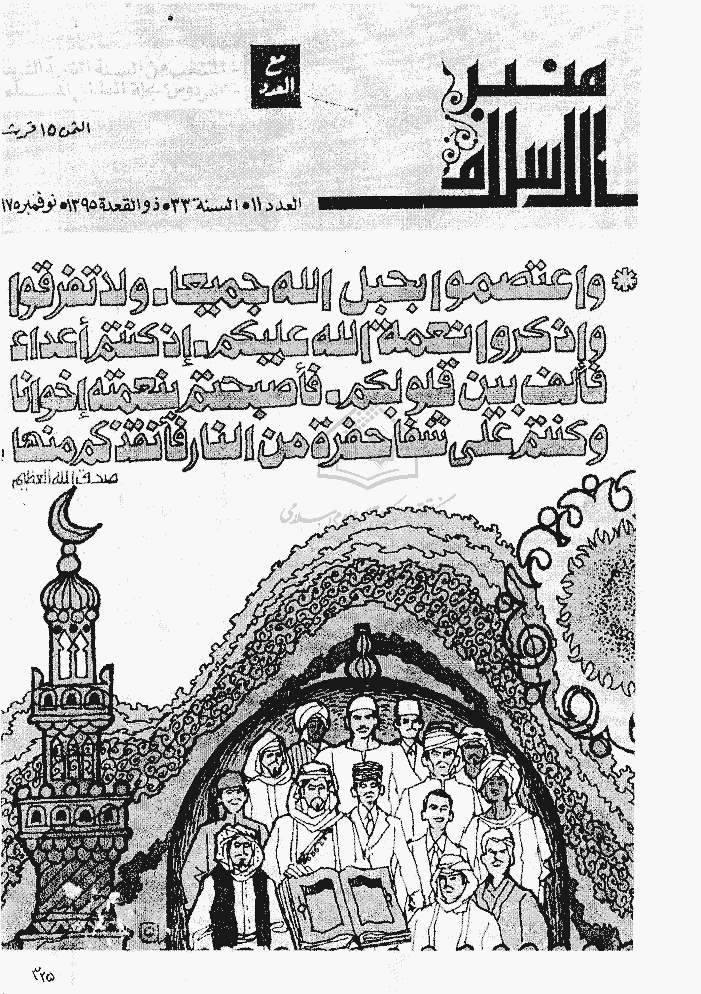 منبر
الإسلام
مع
العدد
الثمن ١٥ قرشا
العدد ١١ • السنة ٣٣ • ذو القعدة ١٣٩٥ • نوفمبر ١٧٥
واعتصموا بحبل الله جميعا . ولا تفرقوا
واذكروا نعمة الله عليكم . إذ كنتم أعداء
فألف بين قلوبكم . فأصبحتم بنعمته إخوانا
وكنتم على شفا حفرة من النار فأنقذكم منها
صدق الله العظيم
٣٢٥